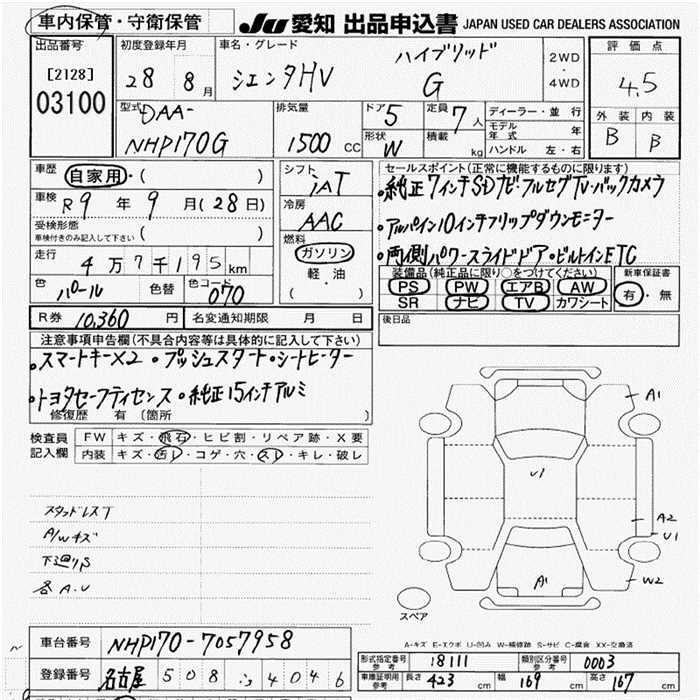 車内保管・守衛保管
JU 愛知 出品申込書 JAPAN USED CAR DEALERS ASSOCIATION
出品番号 [2128] 03100
初度登録年月 28 8月
車名・グレード シエンタHV ハイブリッド G
2WD ・ 4WD
評価点 4.5
外装 内装
B B
型式 DAA- NHP170G
排気量 1500 CC
ドア 5 定員 7人
形状 W 積載 kg
ディーラー・並行
モデル年式 年
ハンドル 左・右
車歴 自家用・( )
車検 R9年9月(28日)
受検形態 車検付きのみ記入して下さい ( )
走行 4万7千195km
色 パール 色替 色コード 070
シフト IAT
冷房 AAC
燃料 ガソリン
軽・油
( )
セールスポイント(正常に機能するものに限ります)
・純正7インチSDナビ・フルセグTV・バックカメラ
・アルパイン10インチフリップダウンモニター
・両側パワースライドドア・ビルトインETC
装備品(純正品に限り○をつけてください) 新車保証書
PS PW エアB AW
SR ナビ TV カワシート
有・無
R券 10,360 円 名変通知期限 月 日
後日品
注意事項申告欄(不具合内容等は具体的に記入して下さい)
・スマートキーX2・プッシュスタート・シートヒーター
・トヨタセーフティセンス・純正15インチアルミ
修復歴 有 (箇所 )
検査員記入欄
FW キズ・飛石・ヒビ割・リペア跡・X要
内装 キズ・汚レ・コゲ・穴・スレ・キレ・破レ
スタッドレスT
A/Wキズ
下廻りS
各A.U
A1
U1
A2
U1
W2
A1
スペア
A-キズ E-エクボ U-凹み W-補修跡 S-サビ C-腐食 XX-交換済
車台番号 NHP170-7057958
登録番号 名古屋 508 4046
形式指定番号 参考 18111 類別区分番号 参考 0003
車庫証明用 参考 長さ 423 cm 幅 169 cm 高さ 167 cm